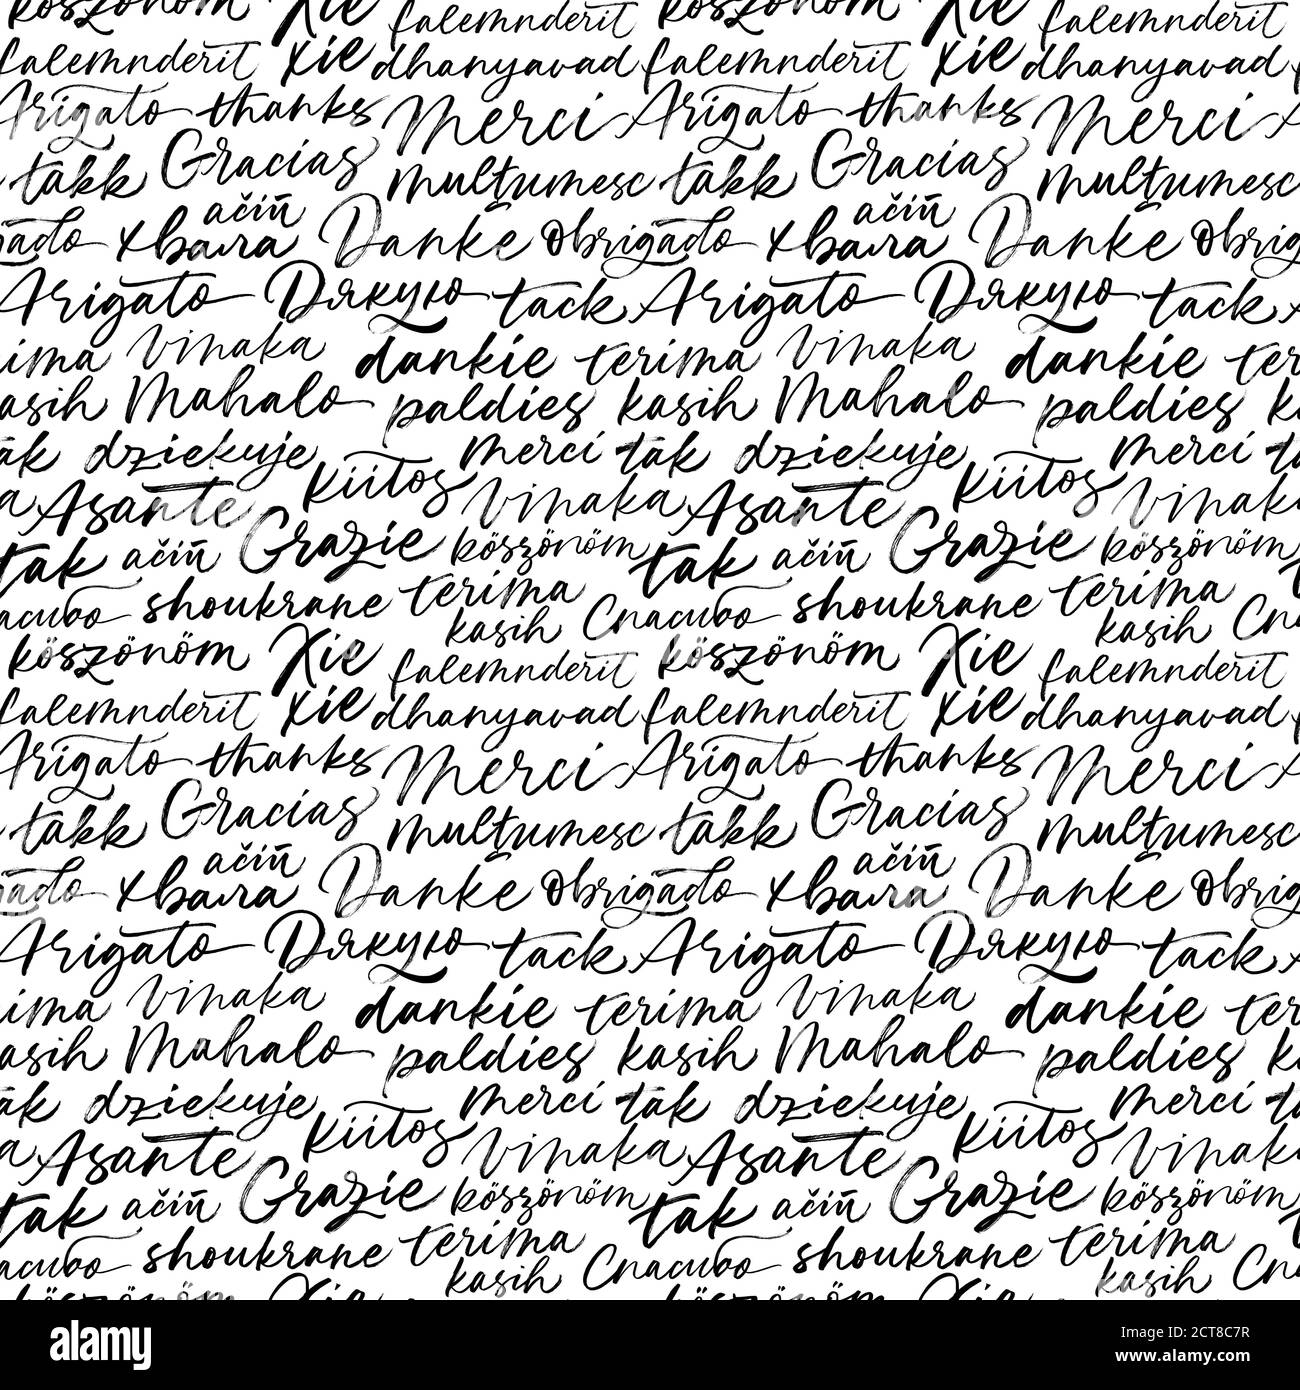 köszönöm Xie falemnderit köszönöm Xie falemnderit
falemnderit xie dhanyavad falemnderit xie dhanyavad
Arigato thanks Merci Arigato thanks Merci
takk Gracias mulțumesc takk Gracias mulțumesc
ačiū ačiū
хвала Danke Obrigado хвала Danke
Arigato Дякую tack Arigato Дякую tack
vinaka dankie terima vinaka dankie
kasih Mahalo paldies kasih Mahalo paldies
tāk dziekuje merci tāk dziekuje merci
Asante kiitos vinaka Asante kiitos vinaka
tak ačiū Grazie köszönöm tak ačiū Grazie köszönöm
shoukrane terima kasih Спасибо shoukrane terima kasih
köszönöm Xie falemnderit köszönöm Xie falemnderit
falemnderit xie dhanyavad falemnderit xie dhanyavad
Arigato thanks Merci Arigato thanks Merci
takk Gracias mulțumesc takk Gracias mulțumesc
ačiū ačiū
хвала Danke Obrigado хвала Danke
Arigato Дякую tack Arigato Дякую tack
vinaka dankie terima vinaka dankie
kasih Mahalo paldies kasih Mahalo paldies
tāk dziekuje merci tāk dziekuje merci
Asante kiitos vinaka Asante kiitos vinaka
tak ačiū Grazie köszönöm tak ačiū Grazie köszönöm
shoukrane terima kasih Спасибо shoukrane terima kasih
alamy
Image ID: 2CT8C7R
www.alamy.com